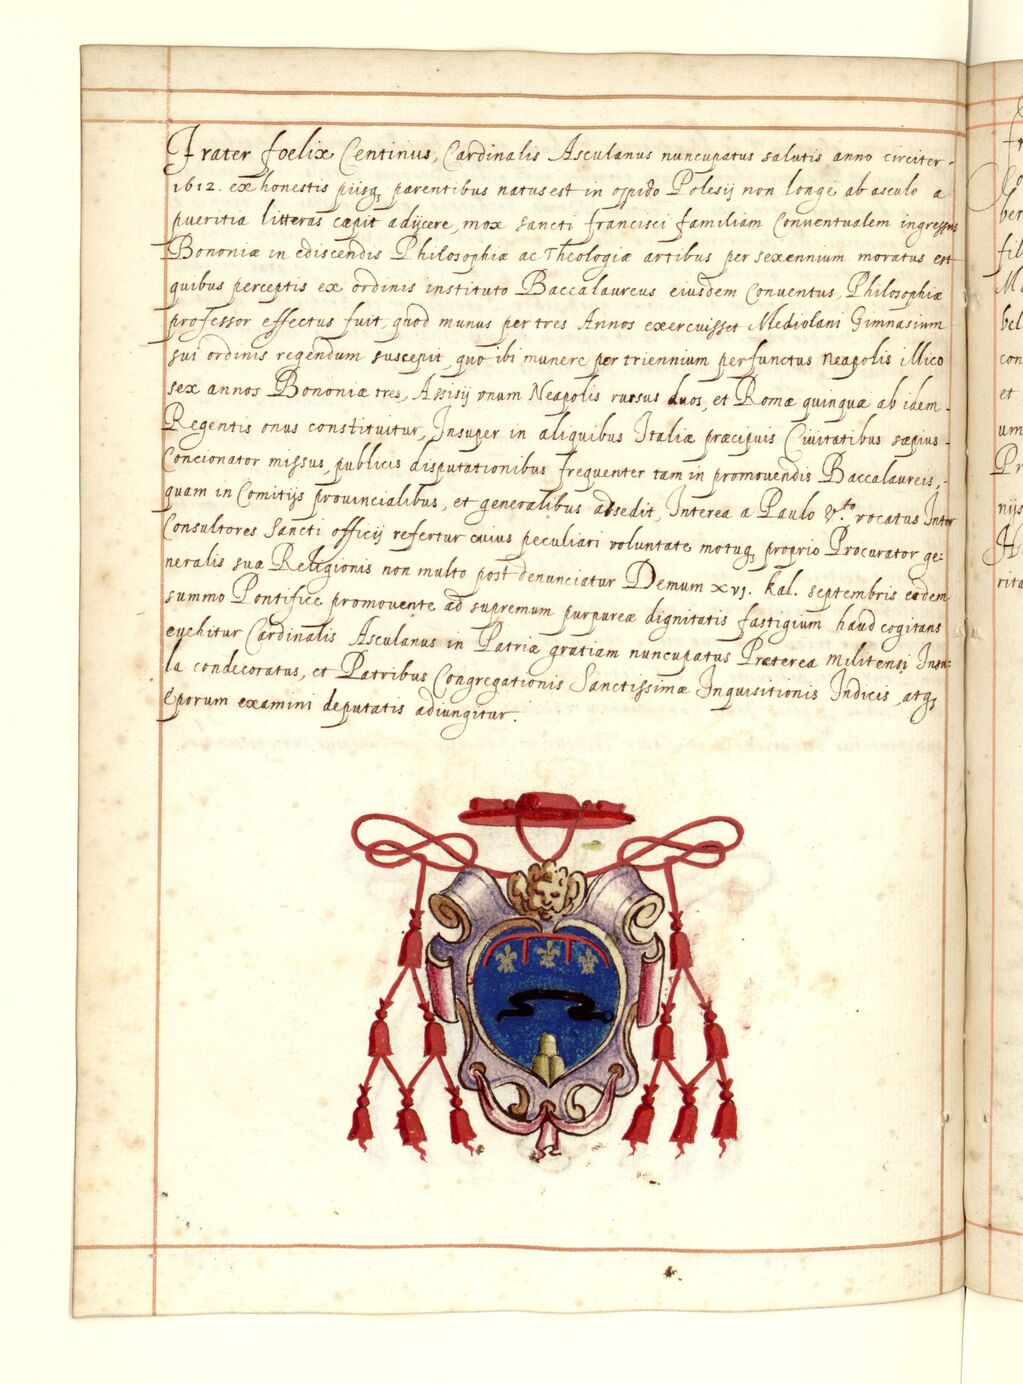 Frater foelix Centinus, Cardinalis Asculanus nuncupatus salutis anno circiter
1612. ex honestis piisq₃ parentibus natus est in oppido Polesij non longe ab asculo a
pueritia litteras cæpit adijcere, mox sancti francisci familiam Conuentualem ingressus
Bononiæ in ediscendis Philosophiæ ac Theologiæ artibus per sexennium moratus est
quibus perceptis ex ordinis instituto Baccalaureus eiusdem Conuentus, Philosophiæ
professor effectus fuit, quod munus per tres Annos exercuisset Mediolani Gimnasium
sui ordinis regendum suscepit, quo ibi munere per triennium perfunctus Neapolis illico
sex annos Bononiæ tres, Assisij unum Neapolis rursus duos, et Romæ quinquæ ab idem
Regentis onus constituitur, Insuper in aliquibus Italiæ præcipuis Ciuitatibus sæpius
Concionator missus, publicis disputationibus frequenter tam in promouendis Baccalaureis,
quam in Comitijs prouincialibus, et generalibus adsedit, Interea a Paulo V.to vocatus Inter
Consultores Sancti officij refertur cuius peculiari voluntate motuq₃ proprio Procurator ge:
neralis suæ Religionis non multo post denunciatur Demum xvj. kal. septembris eodem
summo Pontifice promouente ad supremum purpureæ dignitatis fastigium haud cogitans
euchitur Cardinalis Asculanus in Patriæ gratiam nuncupatus Præterea Militensi Insu:
la condecoratus, et Patribus Congregationis Sanctissimæ Inquisitionis Indicis, atq₃
Eporum examini deputatis adiungitur.